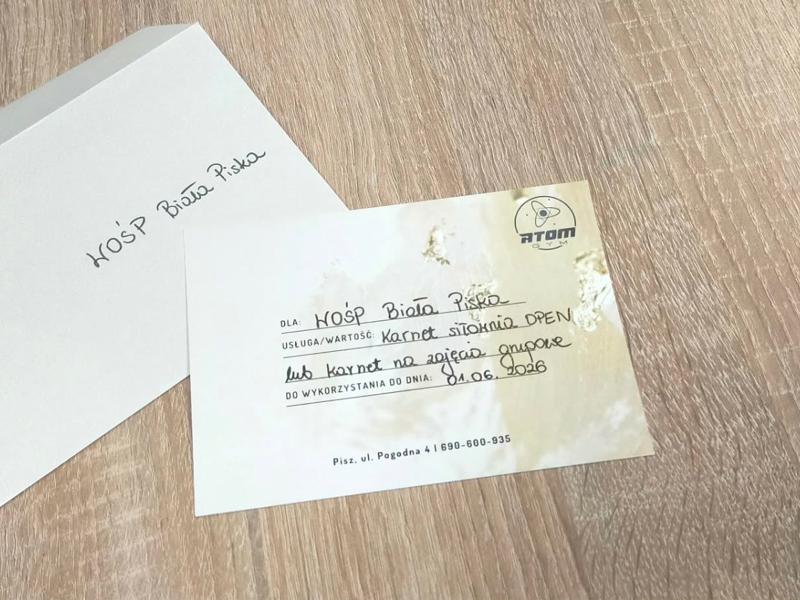 WOŚP Biała Piska
ATOM
GYM
DLA: WOŚP Biała Piska
USŁUGA/WARTOŚĆ: Karnet siłownia OPEN
lub karnet na zajęcia grupowe
DO WYKORZYSTANIA DO DNIA: 01.06.2026
Pisz, ul. Pogodna 4 | 690-600-935